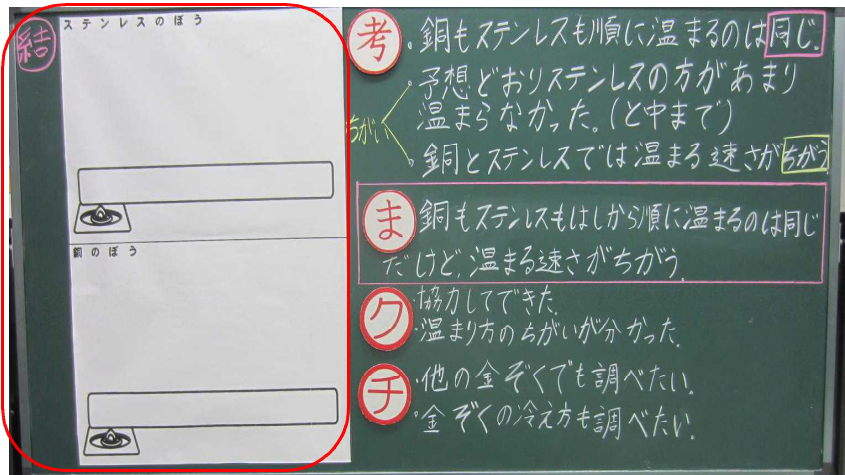 結
ステンレスのぼう
銅のぼう
考
・銅もステンレスも順に温まるのは同じ.
・予想どおりステンレスの方があまり
温まらなかった。(と中まで)
ちがい
・銅とステンレスでは温まる速さがちがう
ま
銅もステンレスもはしから順に温まるのは同じ
だけど、温まる速さがちがう.
ク
・協力してできた.
・温まり方のちがいが分かった.
チ
・他の金ぞくでも調べたい.
・金ぞくの冷え方も調べたい.